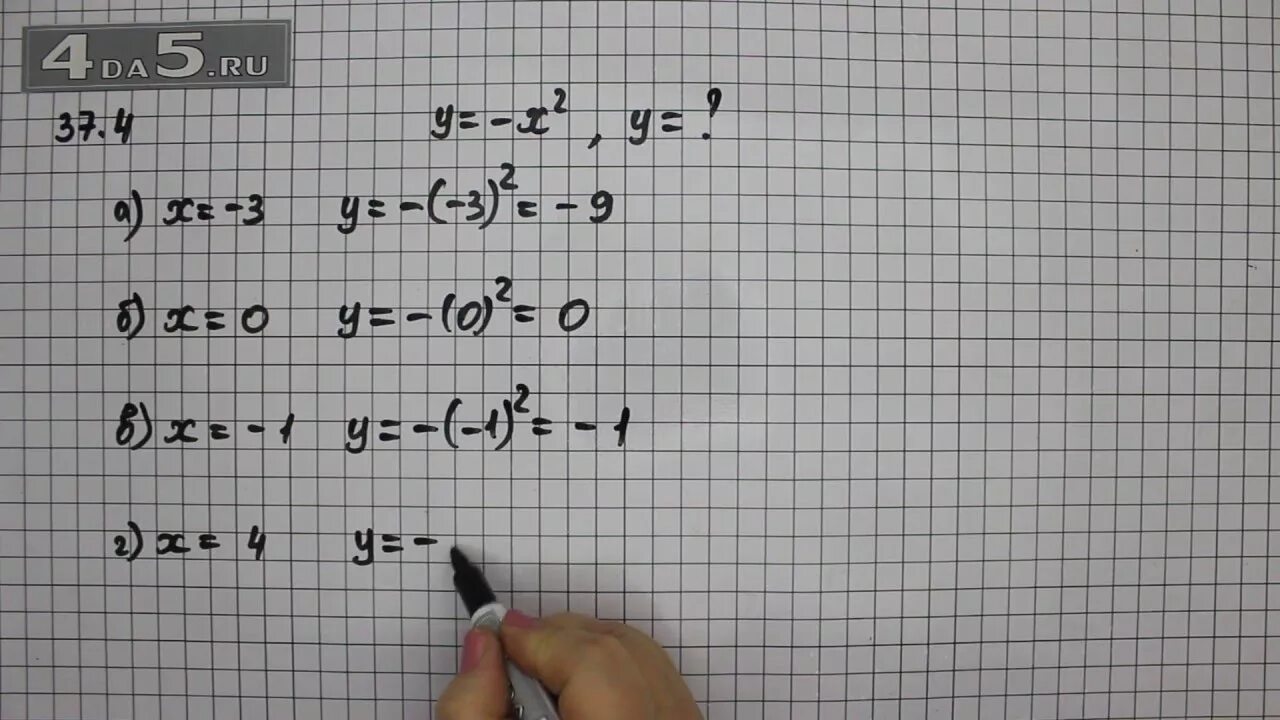 4DA5.RU
37.4 y = -x² , y = ?
а) x = -3 y = -(-3)² = -9
б) x = 0 y = -(0)² = 0
в) x = -1 y = -(-1)² = -1
г) x = 4 y = -